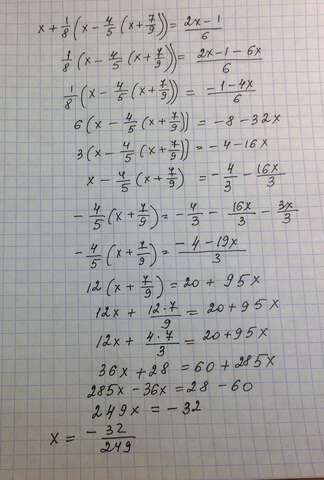 x + 1/8 (x - 4/5 (x + 7/9)) = (2x - 1)/6
1/8 (x - 4/5 (x + 7/9)) = (2x - 1 - 6x)/6
1/8 (x - 4/5 (x + 7/9)) = (-1 - 4x)/6
6 (x - 4/5 (x + 7/9)) = -8 - 32x
3 (x - 4/5 (x + 7/9)) = -4 - 16x
x - 4/5 (x + 7/9) = -4/3 - 16x/3
- 4/5 (x + 7/9) = -4/3 - 16x/3 - 3x/3
- 4/5 (x + 7/9) = (-4 - 19x)/3
12 (x + 7/9) = 20 + 95x
12x + (12·7)/9 = 20 + 95x
12x + (4·7)/3 = 20 + 95x
36x + 28 = 60 + 285x
285x - 36x = 28 - 60
249x = -32
x = -32/249